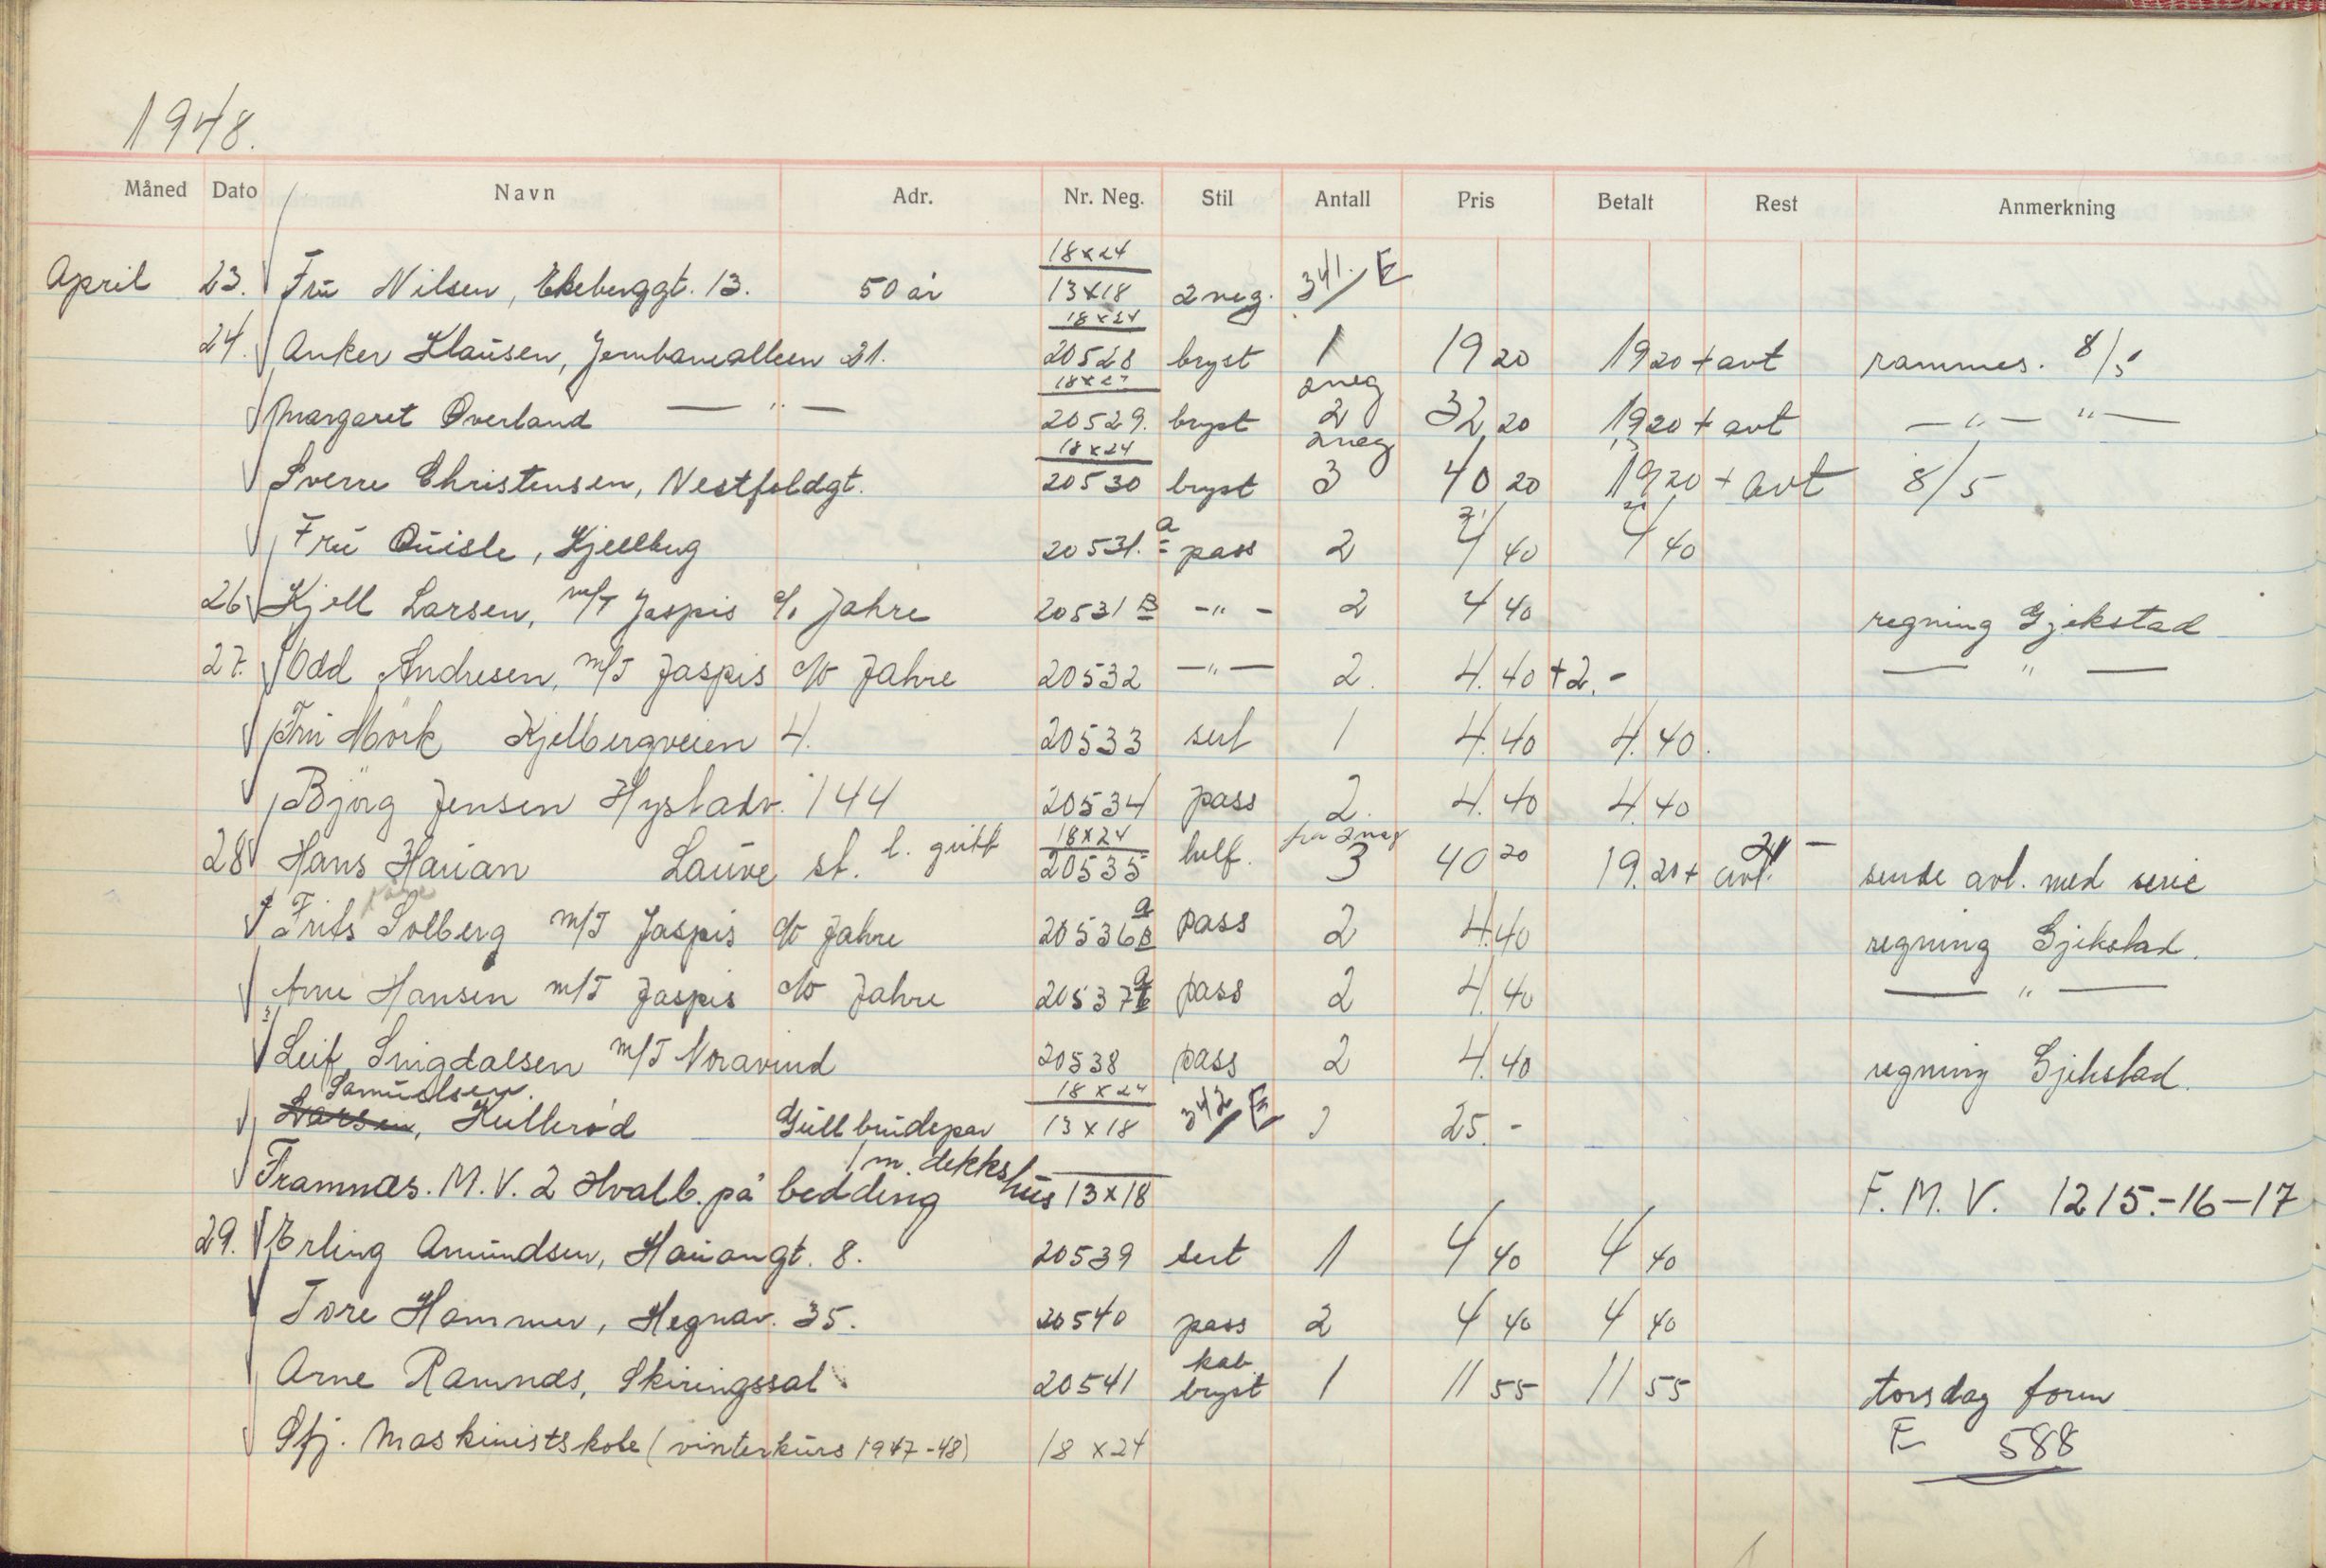 1948.
Måned Dato Navn Adr. Nr. Neg. Stil Antall Pris Betalt Rest Anmerkning
18x24
April 23. Fru Nilsen, Ekeberggt. 13. 50 år 13x18 2 neg. 341. E
18x24
24. Anker Klausen, Jernbanealleen 21. 20528 bryst 1 19 20 19 20 + avt rammes. 8/5
18x24 2 neg
Margaret Överland — " — 20529. bryst 2 32 20 19 20 + avt — " — " —
18x24 2 neg
Sverre Christensen, Vestfoldgt. 20530 bryst 3 40 20 19 20 + avt 8/5
Fru Quisle, Kjellberg 20531. a pass 2 4 40 4 40
26 Kjell Larsen, m/T Jaspis c/o Jahre 20531 B - " - 2 4 40 regning Gjekstad
27. Odd Andresen, m/T Jaspis c/o Jahre 20532 — " — 2. 4. 40 + 2.- — " —
Fru Mörk Kjelbergveien 4. 20533 sert 1 4. 40 4. 40.
Björg Jensen Hystadv. 144 20534 pass 2. 4. 40 4. 40
18x24 2 neg
28 Hans Hauan Lauve st. l. gutt 20535 helf. 3 40 20 19. 20 + avt. sende avt. med serie
Frits Solberg m/T Jaspis c/o Jahre 20536 a B pass 2 4. 40 regning Gjekstad.
Arne Hansen m/T Jaspis c/o Jahre 20537 a b pass 2 4. 40 — " —
Leif Snigdalsen m/T Noravind 20538 pass 2 4. 40 regning Gjekstad.
Samuelsen. 18x24
Larsen, Hullerød Gullbrudepar 13x18 342/E 25.-
1 m. dekkshus
Framnæs. M.V. 2 Hvalb. på bedding 13x18 F.M.V. 1215.-16-17
29. Erling Amundsen, Hauangt. 8. 20539 sert 1 4 40 4 40
Tore Hammer, Hegnav. 35. 20540 pass 2 4 40 4 40
kab
Arne Ramnæs, Skiringssal 20541 bryst 1 11 55 11 55 torsdag form
Sfj. Maskinistskole (vinterkurs 1947-48) 18x24 F 588